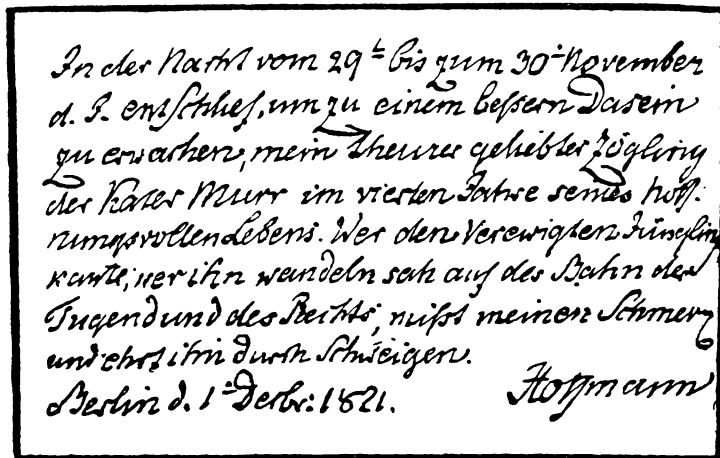 In der Nacht vom 29t bis zum 30t November
d. J. entschlief, um zu einem beßern Dasein
zu erwachen, mein theurer geliebter Zögling
der Kater Murr im vierten Jahre seines hoff-
nungsvollen Lebens. Wer den Verewigten Jüngling
kante, wer ihn wandeln sah auf der Bahn der
Tugend und des Rechts, mißt meinen Schmerz
und ehrt ihn durch Schweigen.
Berlin d. 1t Decbr: 1821. Hoffmann